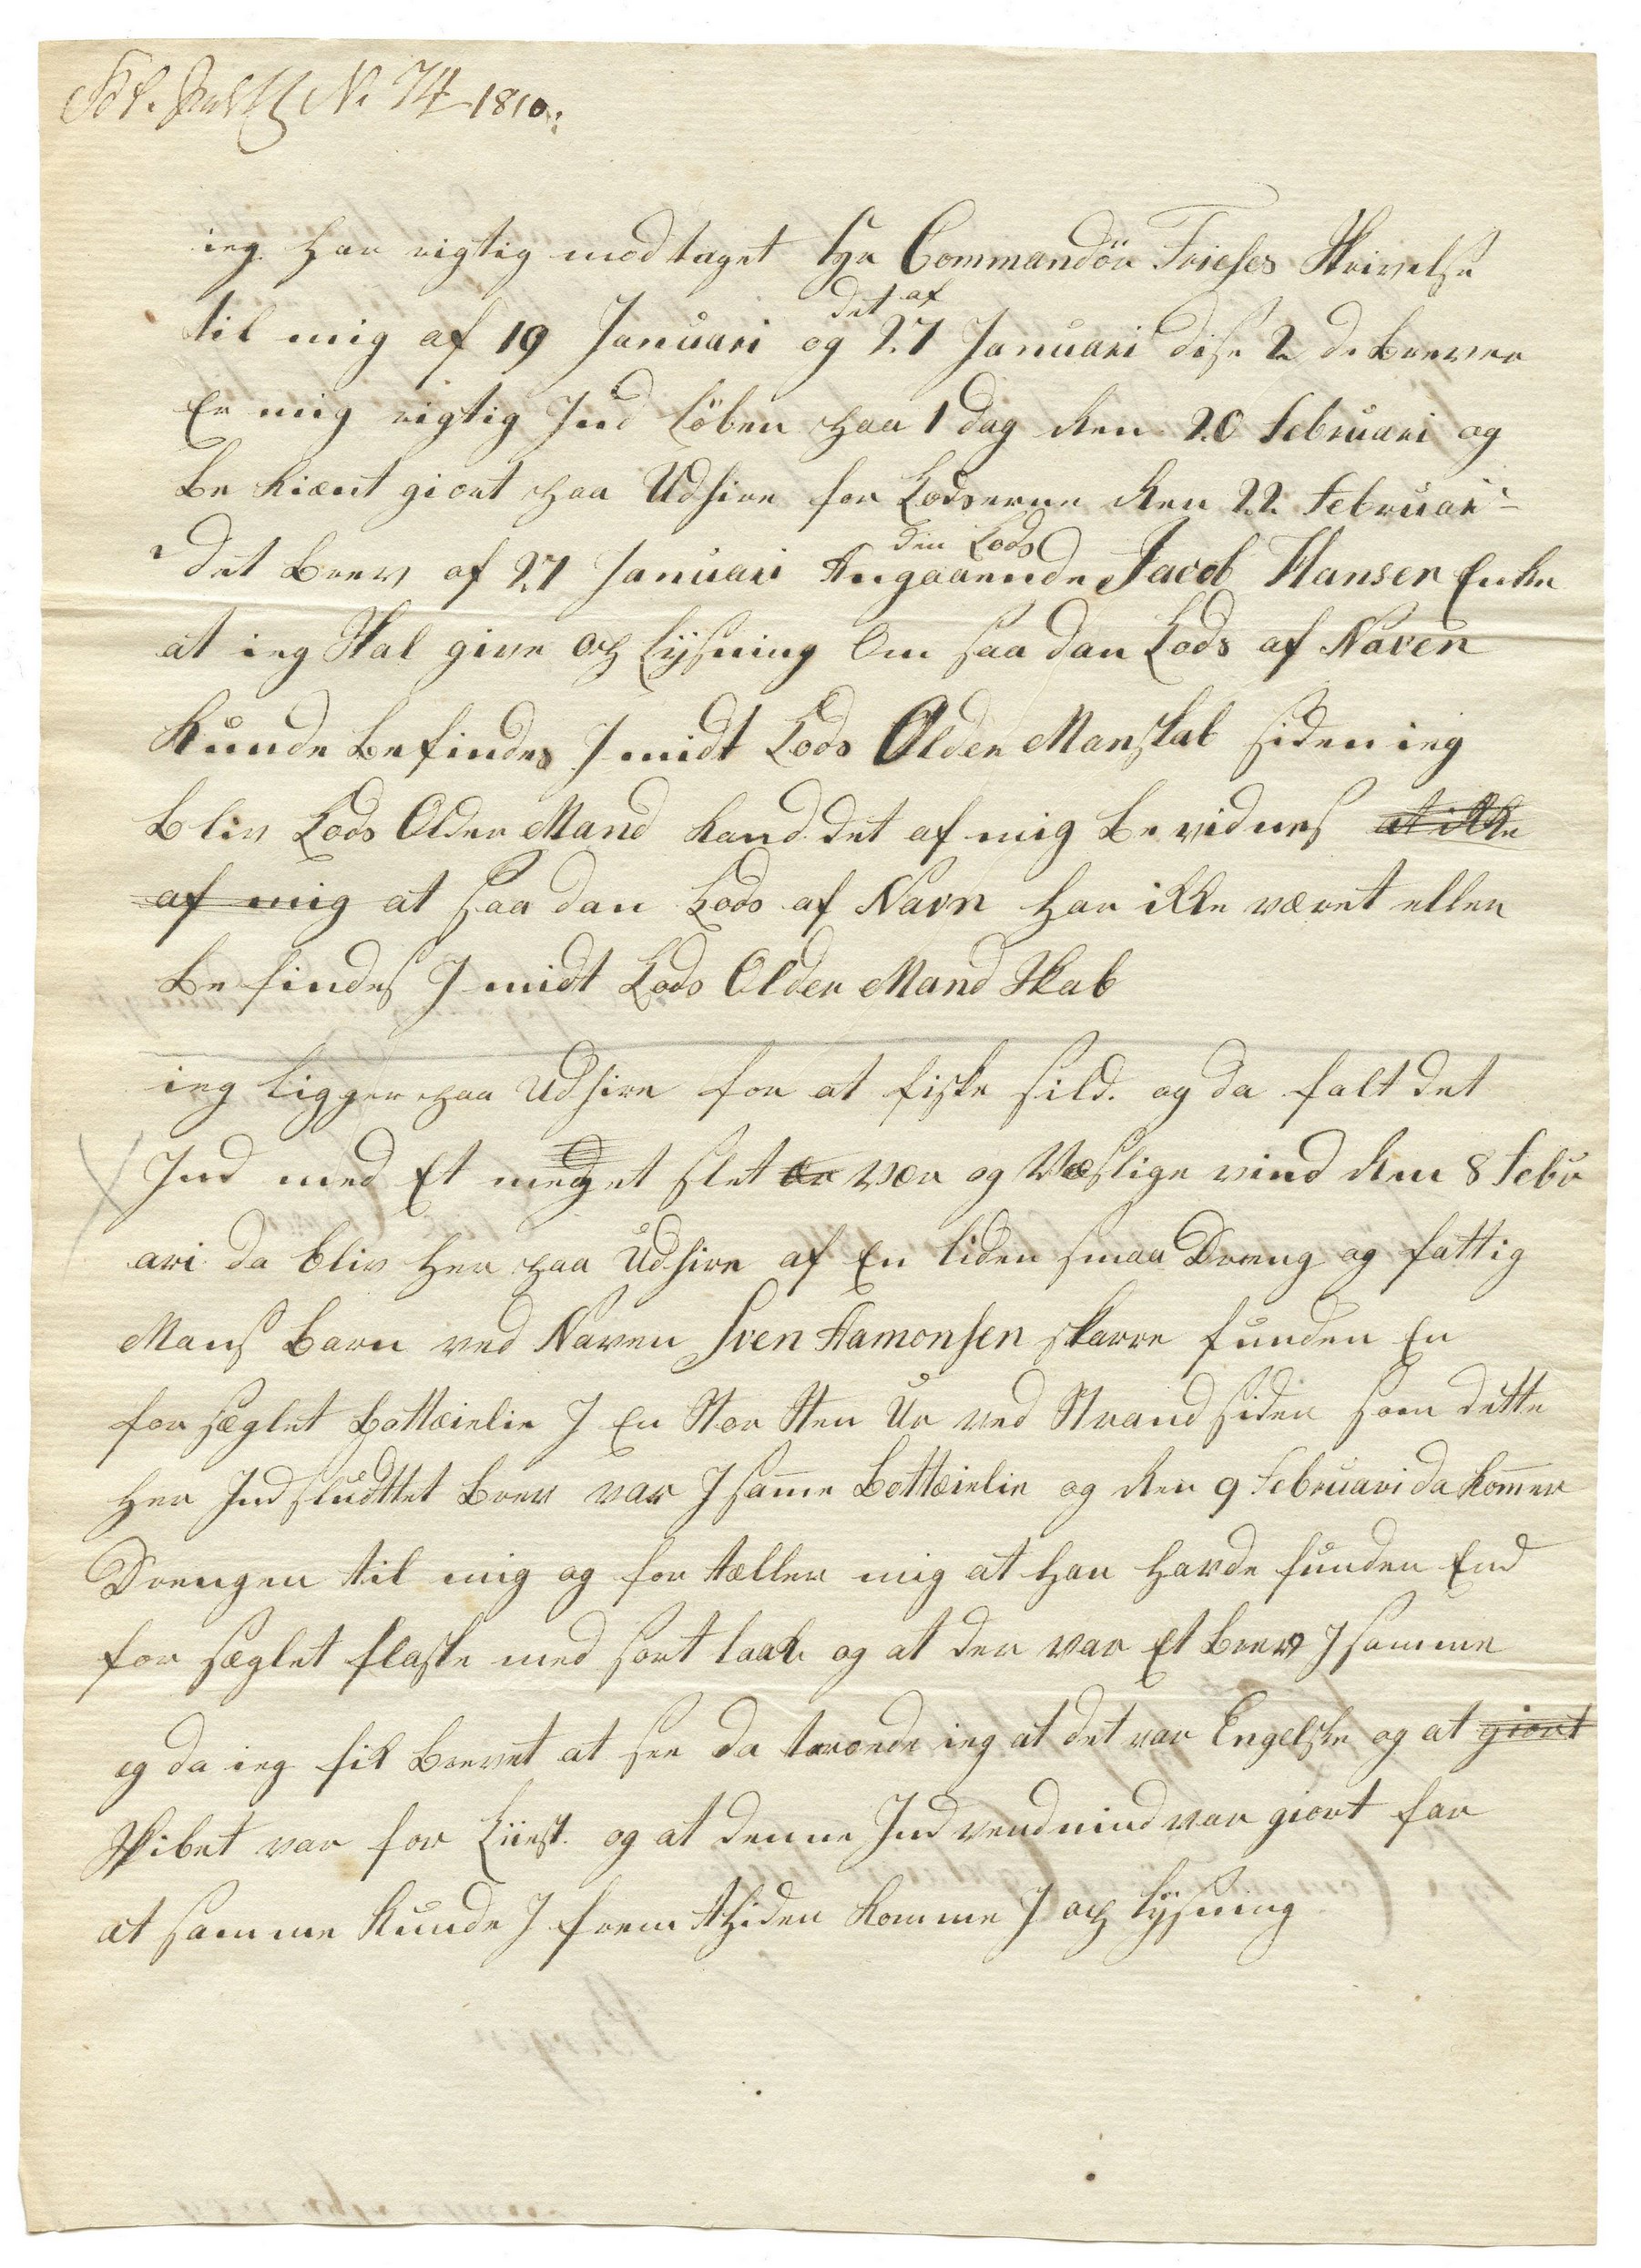 N. 74 1810.
ieg har rigtig modtaget Hr Commandör Frieses Skrivelse
det af
til mig af 19 Januari og 27 Januari dise 2 de brever
Er mig rigtig Ind löben paa 1 dag den 20 Februari og
be kient giort paa Udsire for Lodserne den 22 Februari
den Lods
det brev af 27 Januari Angaaende Jacob Hansen Enke
at ieg Skal give op lÿsning Om saa dan Lods af Naven
kunde befindes I midt Lods Older Manskab siden ieg
bliv Lods Older Mand kand det af mig be vidnes at ikke
af mig at saa dan Lods af Navn har ikke været eller
be findes I midt Lods Older Mand Skab
ieg ligger paa Udsire for at fiske sild. og da falt det
Ind med Et meget slet vær og Væstlige vind den 8 Febru
ari da bliv her paa Udsire af En liden smaa Dreng og fattig
Mans barn ved Naven Sven Aamonsen funden En
for sæglet bottæielie I En Stor Sten Ur ved Strand siden som dette
her Indsludttet brev var I same bottæielie og den 9 Februari da komer
Drengen til mig og for tæller mig at han havde funden End
for sæglet flaske med sort laak og at der var Et brev I samme
og da ieg fik brevet at see da troede ieg at det var Engelske og at giort
Skibet var for Liist. og at denne Ind vendnind var giort for
at samme kunde I frem thiden komme I op lÿsning